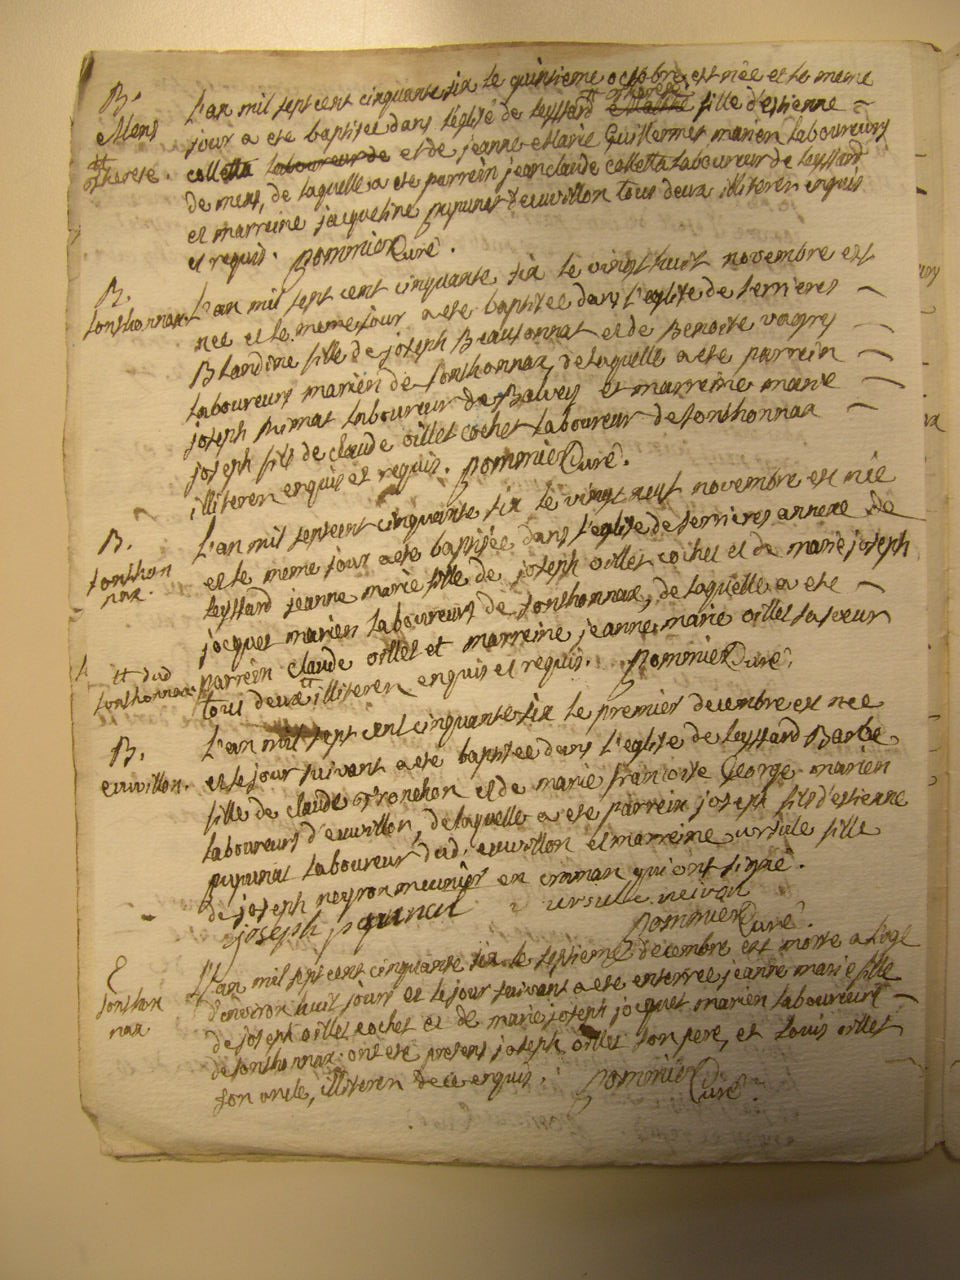 B.
Mens
tt
therese.
L'an mil sept cent cinquante six le quinsieme octobre est née et le meme
jour a ete baptisée dans l'église de leyssard tt therese fille d'estienne
colletta laboureur de et de jeanne Marie Guillermet marien laboureurs
de mens, de laquelle a ete parrein jean claude colletta laboureur de leyssard
et marreine jacqueline pupunat d'euvillon tous deux illiteren enquis
et requis. pommier Curé.
B.
sonthonnax.
L'an mil sept cent cinquante six le vingt huit novembre est
nee et le meme jour a ete baptisee dans l'eglise de serrieres
Blandine fille de joseph Beausonnat et de Benoite vagrey
laboureurs marien de sonthonnax, de laquelle a ete parrein
joseph laboureur de Balvey et marreine marie
joseph fils de claude oillet cochet laboureur de sonthonnax
illiteren enquis et requis. pommier Curé.
B.
sonthon
nax.
L'an mil septcent cinquante six le vingt neuf novembre est née
et le meme jour a ete baptisée dans l'eglise de serrieres annexe de
leyssard jeanne marie fille de joseph oillet cochet et de marie joseph
jocquet marien laboureurs de sonthonnax, de laquelle a ete
parrein claude oillet et marreine jeanne marie oillet sa soeur
tt dud
sonthonnax.
tous deux tt illiteren enquis et requis. pommier Curé.
B.
euvillon.
L'an mil sept cent cinquante six le premier decembre est nee
et le jour suivant a ete baptisee dans l'eglise de leyssard Barbe
fille de claude tronchon et de marie francoise George marien
laboureurs d'euvillon, de laquelle a ete parrein joseph fils d'estienne
pupunat laboureur dud. euvillon et marreine ursule fille
de joseph neyron meunier en cmman qui ont signé.
joseph pqunat ursulle neiron
pommier Curé.
sonthon
nax
L'an mil sept cent cinquante six le septieme decembre est morte a l'age
d'environ huit jours et le jour suivant a ete enterree jeanne marie fille
de joseph oillet cochet et de marie joseph jocquet marien laboureurs
de sonthonnax. ont ete presens joseph oillet son pere, et louis oillet
son oncle, illiteren de ce enquis. pommier
Curé.